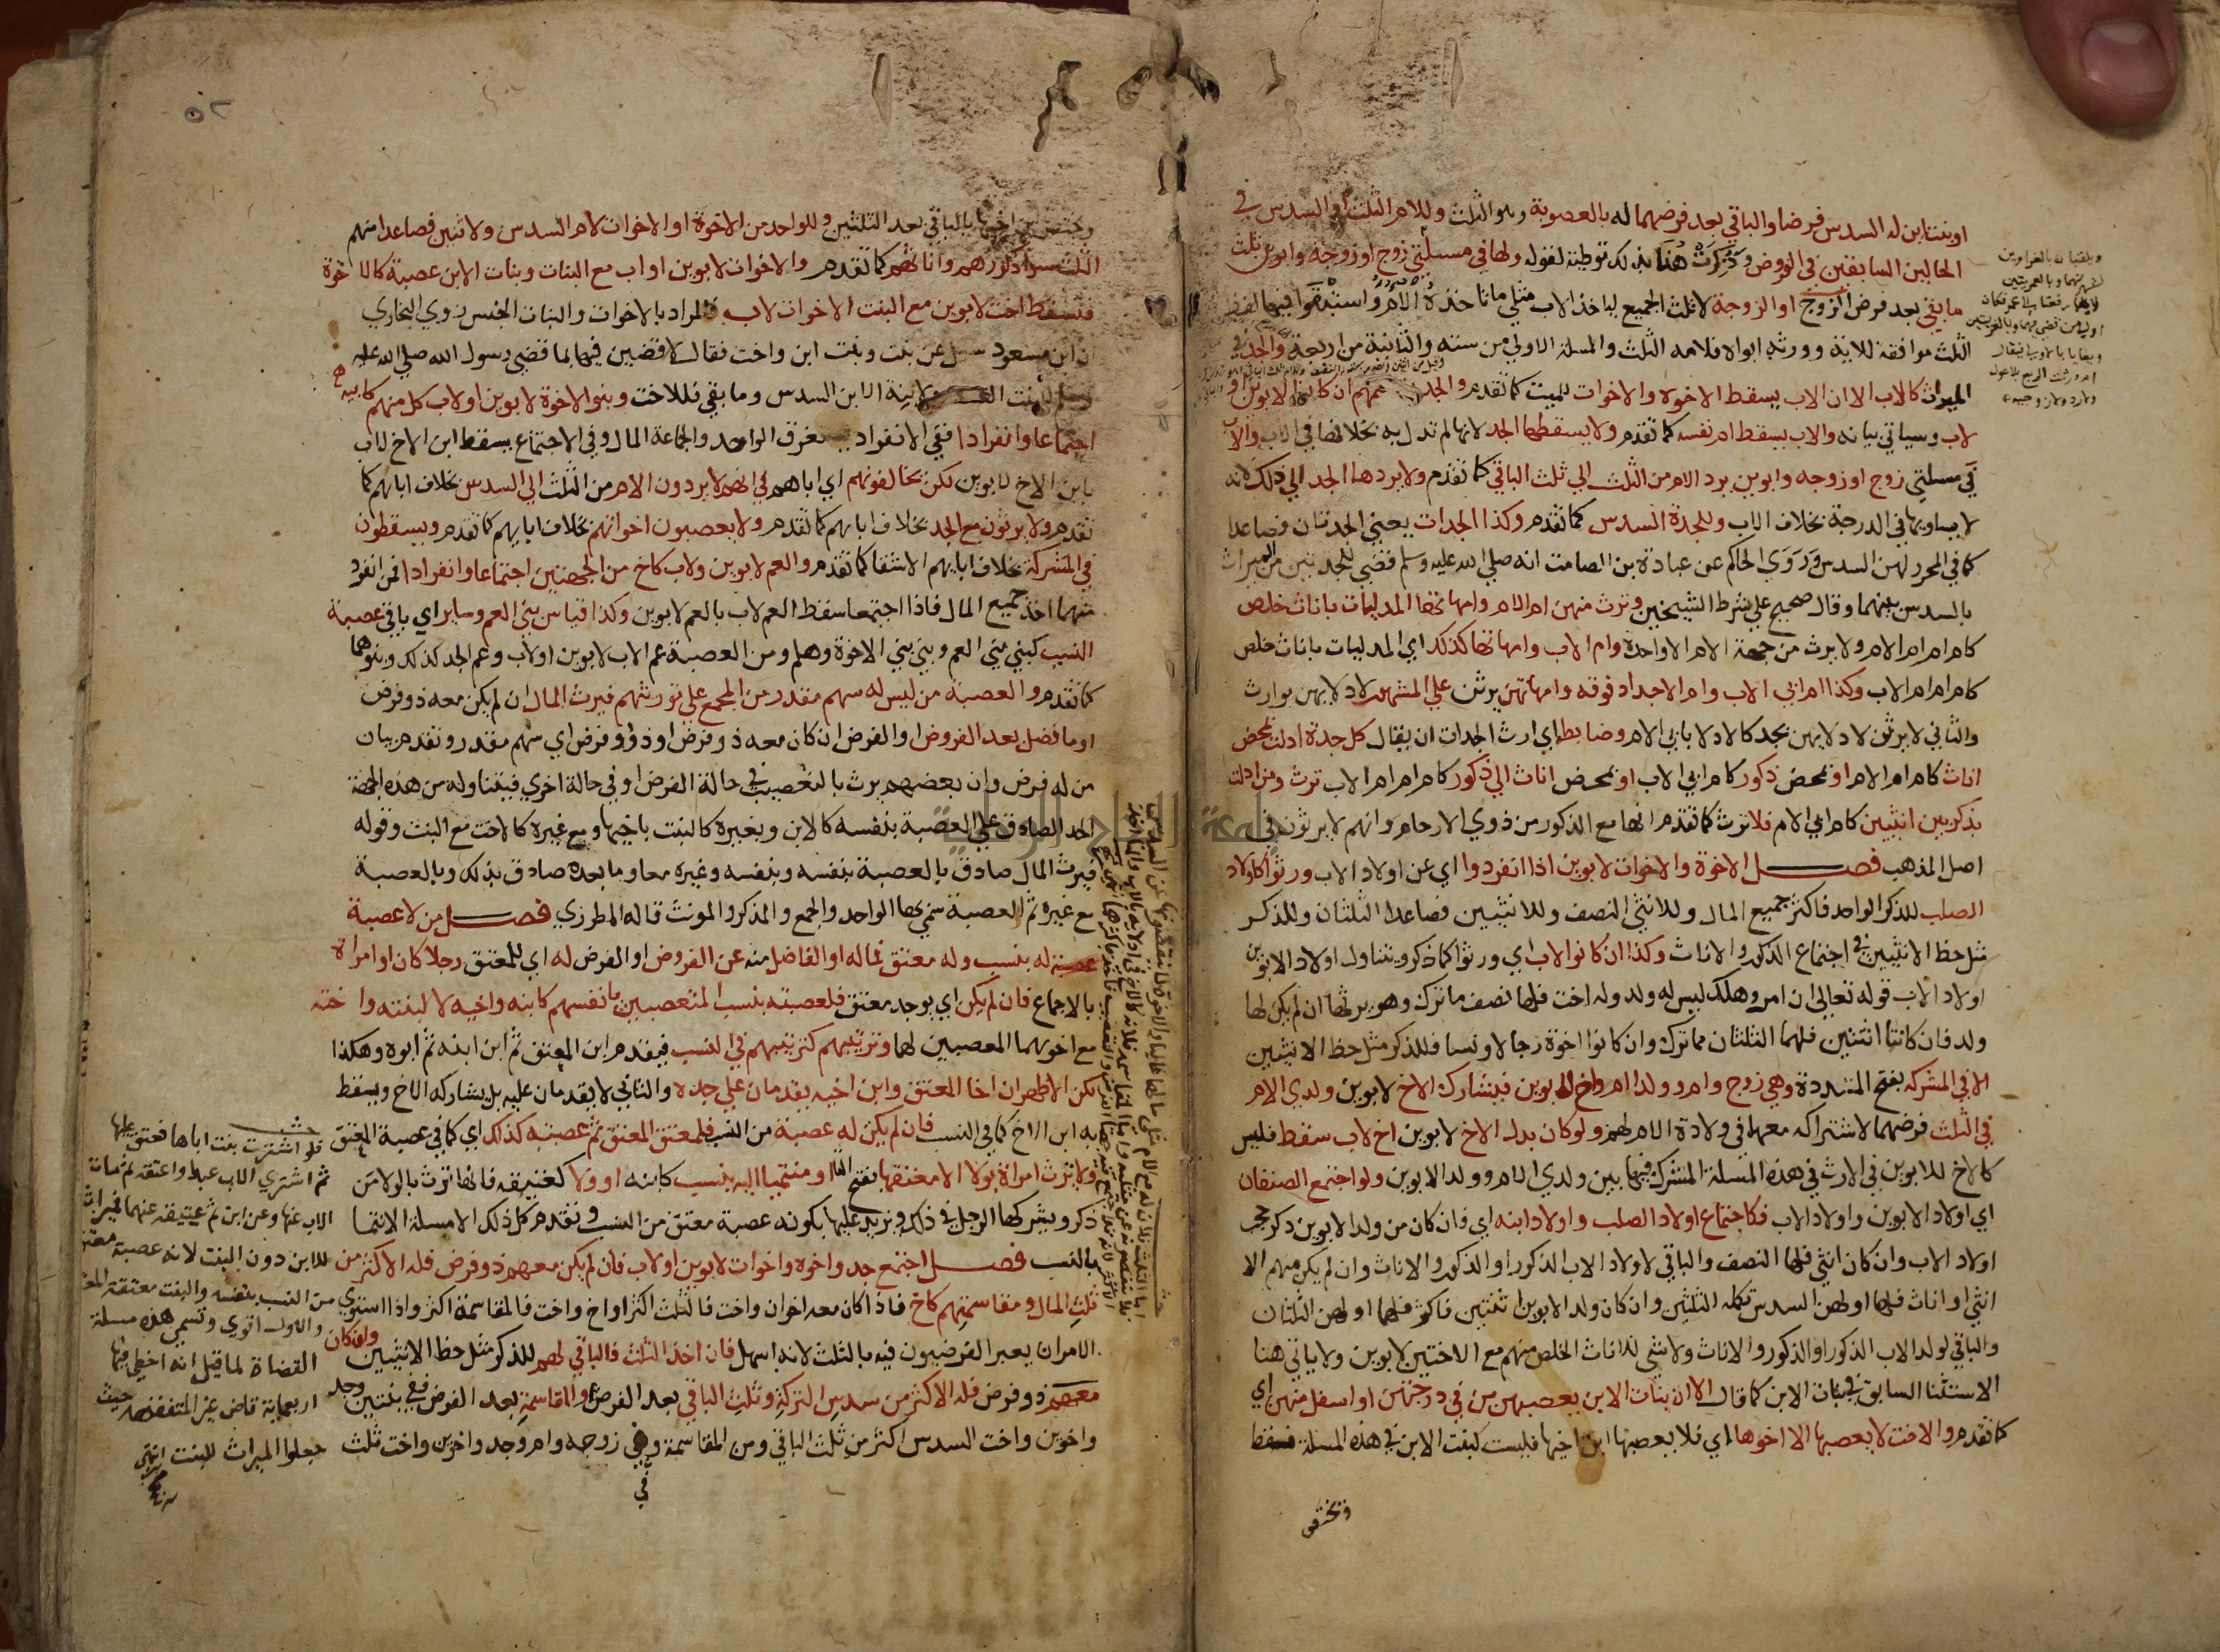 او بنت ابن له السدس فرضا والباقي بعد فرضهما له بالعصوبة وهو الثلث وللام الثلث او السدس في
الحالين السابقين في الفروض وذكرت هنا بذلك توطئة لقوله ولها في مسئلتي زوج او زوجة وابوين ثلث
ما بقي بعد فرض الزوج او الزوجة لا ثلث الجميع لياخذ الاب مثلي ما تاخذه الام واستبقوا فيهما لفظ
الثلث موافقة للاية وورثه ابواه فلامه الثلث والمسئلة الاولى من ستة والثانية من اربعة والجد في
الميراث كالاب الا ان الاب يسقط الاخوة والاخوات للميت كما تقدم والجد ان كانوا لابوين او
لاب وسياتي بيانه والاب يسقط ام نفسه كما تقدم ولا يسقطها الجد لانها لم تدل به بخلافها في الاب والاب
في مسئلتي زوج او زوجه وابوين يرد الام من الثلث الي ثلث الباقي كما تقدم ولا يردها الجد الي ذلك لانه
لا يساويها في الدرجة بخلاف الاب وللجدة السدس كما تقدم وكذا الجدات يعني الجدتان فصاعدا
كما في المحرر لهن السدس وروي الحاكم عن عبادة بن الصامت انه صلي الله عليه وسلم قضي للجدتين من الميراث
بالسدس بينهما وقال صحيح علي شرط الشيخين وترث منهن ام الام وامهاتها المدليات باناث خلص
كام ام ام الام ولا يرث من جهة الام الا واحدة وام الاب وامهاتها كذلك اي المدليات باناث خلص
كام ام ام الاب وكذا ام ابي الاب وام الاجداد فوقه وامهاتهن يرثن علي المشهور لادلائهن بوارث
والثاني لا يرثن لادلائهن بجد كالادلا بابي الام وضابط اي ارث الجدات ان يقال كل جدة ادلت بمحض
اناث كام ام الام او بمحض ذكور كام ابي الاب او بمحض اناث الي ذكور كام ام ام الاب ترث ومن ادلت
بذكر بين انثيين كام ابي الام فلا ترث كما تقدم انها مع الذكور من ذوي الارحام وانهم لا يرثون في
اصل المذهب فصل الاخوة والاخوات لابوين اذا انفردوا اي عن اولاد الاب ورثوا كاولاد
الصلب للذكر الواحد فاكثر جميع المال وللانثي النصف وللانثيين فصاعدا الثلثان وللذكر
مثل حظ الانثيين في اجتماع الذكور والاناث وكذا ان كانوا لاب اي ورثوا كما ذكر ويتناول اولاد الابوين
اولاد الاب قوله تعالي ان امرو هلك ليس له ولد وله اخت فلها نصف ما ترك وهو يرثها ان لم يكن لها
ولد فان كانتا اثنتين فلهما الثلثان مما ترك وان كانوا اخوة رجالا ونسا فللذكر مثل حظ الانثيين
الا في المشركه بفتح المشددة وهي زوج وام وولدا ام واخ لابوين فيشارك الاخ لابوين ولدي الام
في الثلث فرضهما لاشتراكه معهما في ولادة الام لهم ولو كان بدل الاخ لابوين اخ لاب سقط فليس
كالاخ للابوين في الارث في هذه المسئلة المشرك فيها بين ولدي الام وولد الابوين ولو اجتمع الصنفان
اي اولاد الابوين واولاد الاب فكاجتماع اولاد الصلب واولاد ابنه اي فان كان من ولد الابوين ذكر حجب
اولاد الاب وان كان انثي فلها النصف والباقي لاولاد الاب الذكور او الذكور والاناث وان لم يكن منهم الا
انثي او اناث فلها او لهن السدس تكمله الثلثين وان كان ولد الابوين انثيين فاكثر فلهما او لهن الثلثان
والباقي لولد الاب الذكور او الذكور والاناث ولا شي للاناث الخلص منهم مع الاختين لابوين ولا ياتي هنا
الاستثنا السابق في بنات الابن كما قال الا ان بنات الابن يعصبهن من في درجتهن او اسفل منهن اي
كما تقدم والاخت لا يعصبها الا اخوها اي فلا يعصبها ابن اخيها فليست كبنت الابن في هذه المسئلة فسقط
وتختص
٥٢
ويختص ابن اخيها بالباقي بعد الثلثين وللواحد من الاخوة او الاخوات لام السدس ولاثنين فصاعدا منهم
الثلث سوا ذكورهم واناثهم كما تقدم والاخوات لابوين او اب مع البنات وبنات الابن عصبة كالاخوة
فتسقط اخت لابوين مع البنت الاخوات لاب المراد بالاخوات والبنات الجنس روي البخاري
ان ابن مسعود سئل عن بنت وبنت ابن واخت فقال لاقضين فيها بما قضي رسول الله صلي الله عليه
وسلم للبنت ولابنة الابن السدس وما بقي فللاخت وبنوا الاخوة لابوين او لاب كل منهم كابيه
اجتماعا وانفرادا ففي الانفراد يستغرق الواحد والجماعة المال وفي الاجتماع يسقط ابن الاخ لاب
بابن الاخ لابوين لكن يخالفونهم اي اباهم في انهم لا يردون الام من الثلث الي السدس بخلاف ابائهم كما
تقدم ولا يرثون مع الجد بخلاف ابائهم كما تقدم ولا يعصبون اخواتهم بخلاف ابائهم كما تقدم ويسقطون
في المشركة بخلاف ابائهم الاشقا كما تقدم والعم لابوين ولاب كاخ من الجهتين اجتماعا وانفرادا فمن انفرد
منهما اخذ جميع المال فاذا اجتمعا سقط العم لاب بالعم لابوين وكذا قياس بني العم وساير اي باقي عصبة
النسب كبني بني العم وبني بني الاخوة وهلم ومن العصبة عم الاب لابوين او لاب وعم الجد كذلك وبنوهما
كما تقدم والعصبة من ليس له سهم مقدر من المجمع علي توريثهم فيرث المال ان لم يكن معه ذو فرض
او ما فضل بعد الفروض او الفرض ان كان معه ذو فرض او ذوو فرض اي سهم مقدر وتقدم بيان
من له فرض وان بعضهم يرث بالتعصيب في حالة الفرض او في حالة اخري فيتناوله من هذه الجهة
الحد الصادق علي العصبة بنفسه كالابن وبغيره كالبنت باخيها ومع غيره كالاخت مع البنت وقوله
فيرث المال صادق بالعصبة بنفسه وبنفسه وغيره معا وما بعده صادق بذلك وبالعصبة
مع غيره ثم العصبة سمي بها الواحد والجمع والمذكر والمونث قاله المطرزي فصل من لا عصبة
له بنسب وله معتق فماله او الفاضل منه عن الفروض او الفرض له اي للمعتق رجلا كان او امراة
بالاجماع فان لم يكن اي يوجد معتق فلعصبته بنسب المتعصبين بانفسهم كابنه واخيه لا لبنته واخته
مع اخويهما المعصبين لهما وترتيبهم كترتيبهم في النسب فيقدم ابن المعتق ثم ابن ابنه ثم ابوه وهكذا
لكن الاظهر ان اخا المعتق وابن اخيه يقدمان علي جده والثاني لا يقدمان عليه بل يشاركه الاخ ويسقط
به ابن الاخ كما في النسب فان لم يكن له عصبة من النسب فلمعتق المعتق ثم عصبته كذلك اي كما في عصبة المعتق
ولا ترث امراة بولا الا معتقها بفتح التا او منتميا اليه بنسب كابنه او ولا كعتيقه فانها ترث بالولا من
ذكر ويشركها الرجل في ذلك ويزيد عليها بكونه عصبة معتق من النسب وتقدم كل ذلك الا مسئلة الانتما
بالنسب فصل اجتمع جد واخوة واخوات لابوين او لاب فان لم يكن معهم ذو فرض فله الاكثر من
ثلث المال ومقاسمتهم كاخ فاذا كان معه اخوان واخت فالثلث اكثر او اخ واخت فالمقاسمة اكثر واذا استوي
الامران يعبر الفرضيون فيه بالثلث لانه اسهل فان اخذ الثلث فالباقي لهم للذكر مثل حظ الانثيين وان كان
معهم ذو فرض فله الاكثر من سدس التركة وثلث الباقي بعد الفرض والمقاسمة بعد الفرض ففي بنتين وجد
واخوين واخت السدس اكثر من ثلث الباقي ومن المقاسمة وفي زوجه وام وجد واخوين واخت ثلث
في
فلو اشترت بنت اباها فعتق عليها
ثم اشتري الاب عبدا واعتقه ثم مات
الاب عنها وعن ابن ثم عتيقه عنهما فميراثه
للابن دون البنت لانه عصبة معتق
من النسب بنفسه والبنت معتقة المعتق
والاول اقوي وتسمي هذه مسئلة
القضاة لما قيل انه اخطا فيها
اربعماية قاض غير المتفقهة حيث
جعلوا الميراث للبنت انتهي